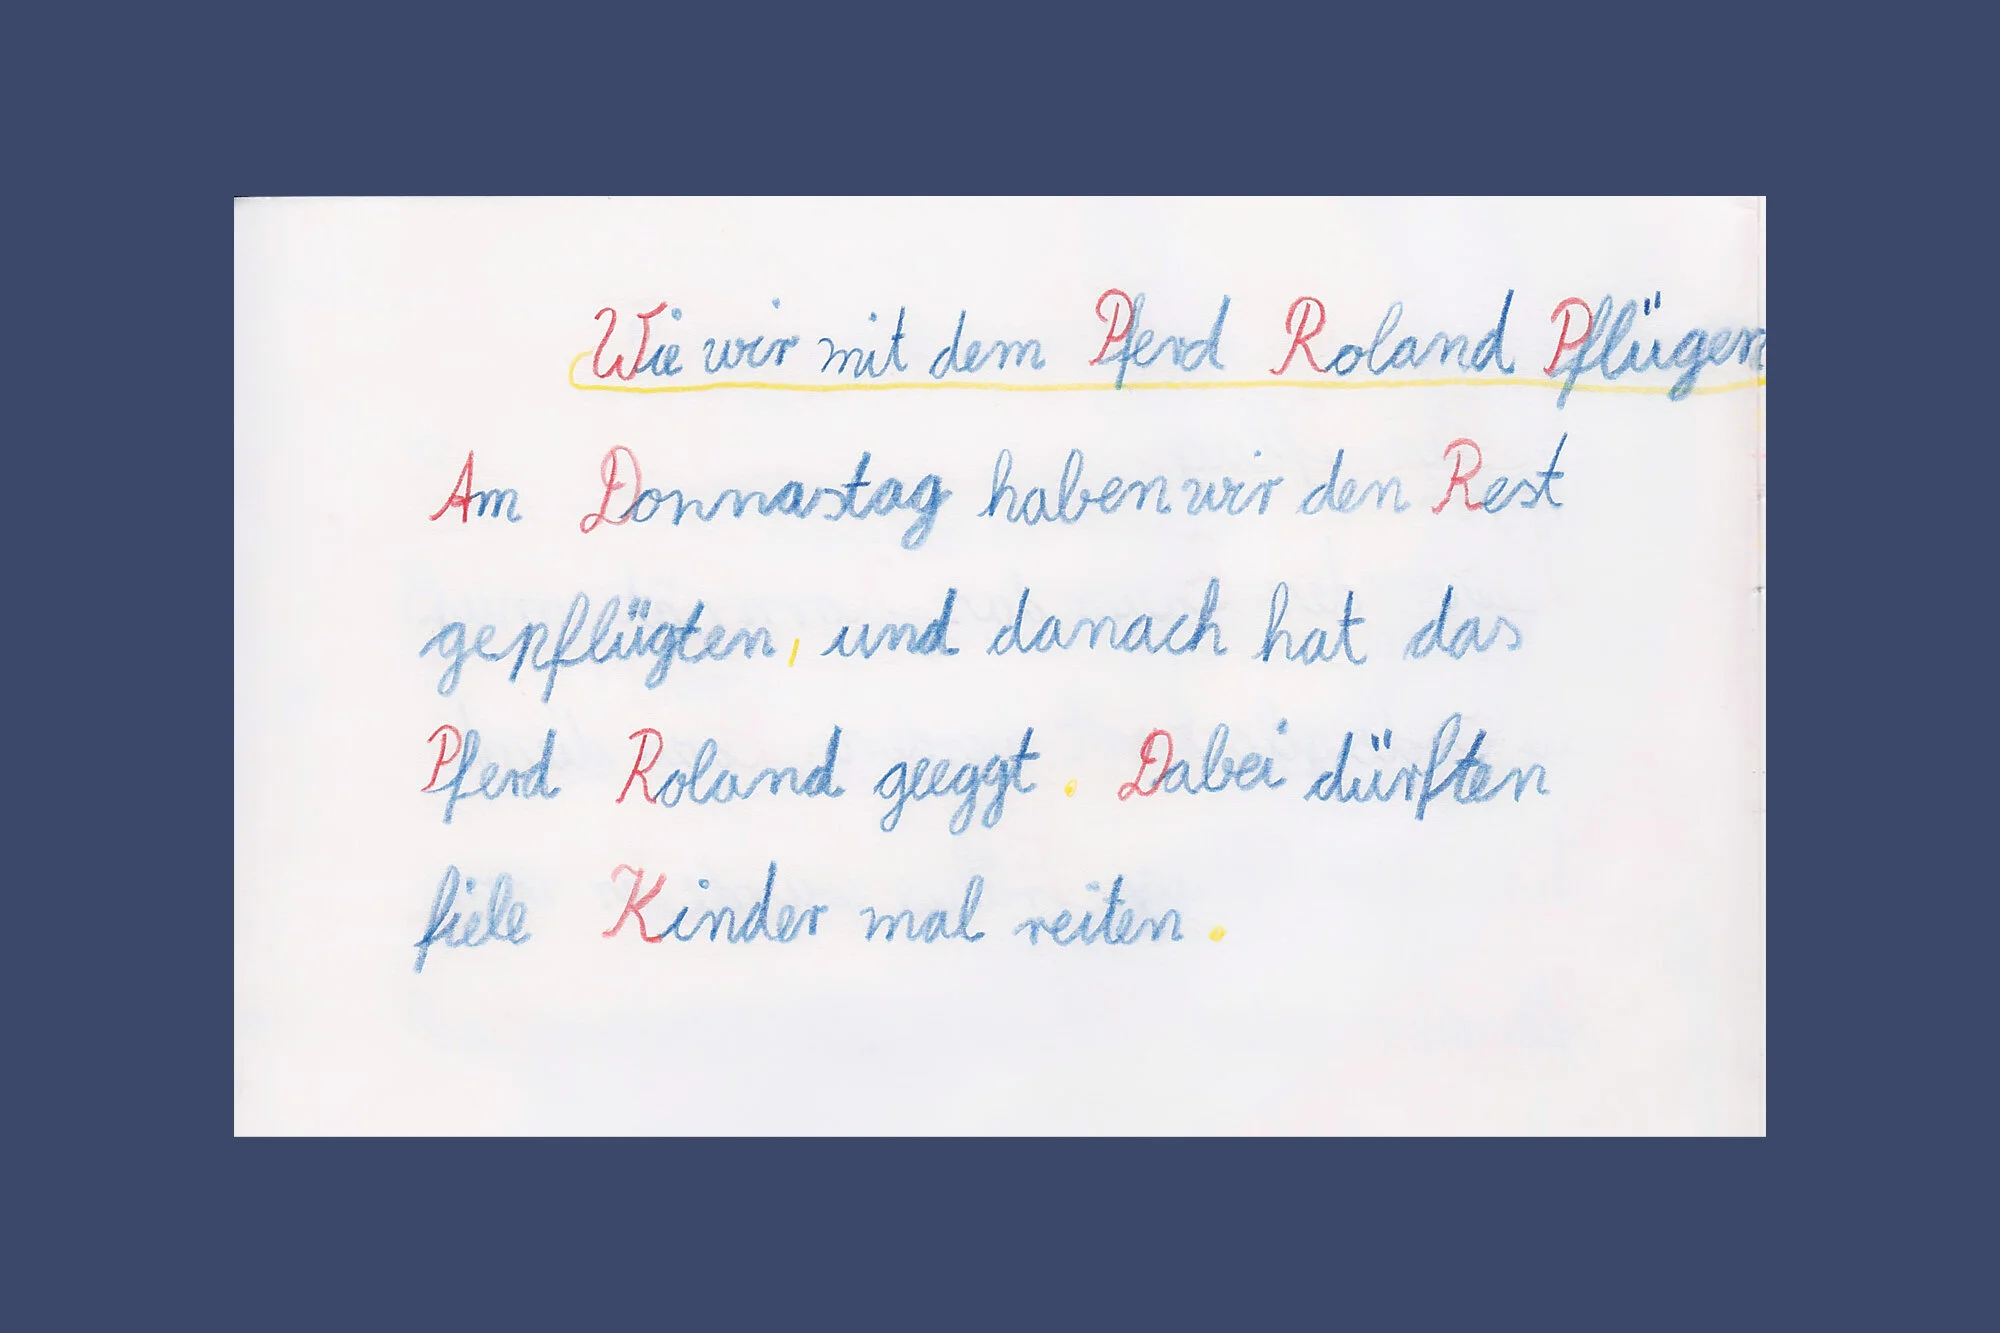 Wie wir mit dem Pferd Roland Pflügen
Am Donnastag haben wir den Rest
gepflügten, und danach hat das
Pferd Roland geeggt. Dabei dürften
fiele Kinder mal reiten.